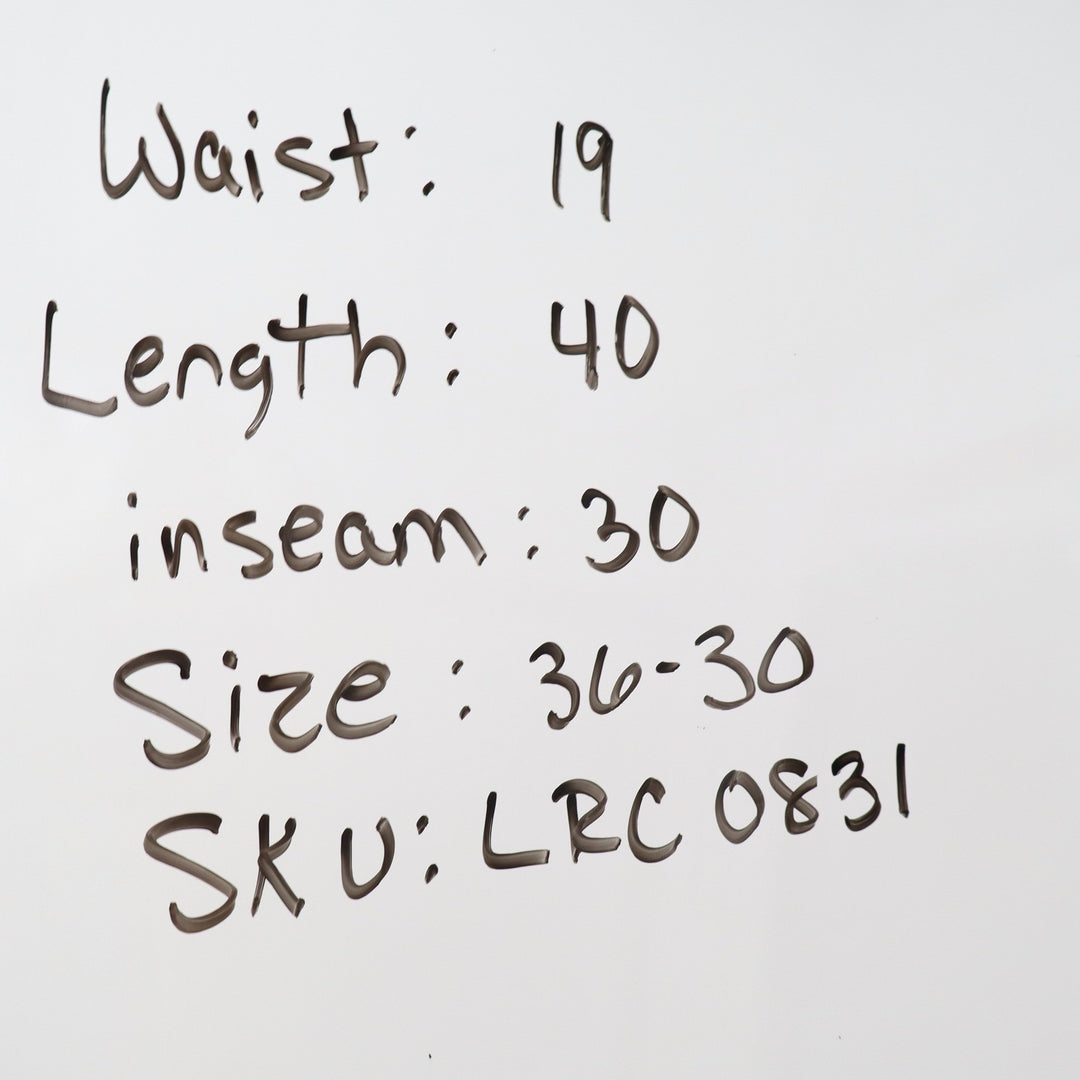 Waist: 19
Length: 40
inseam: 30
Size: 36-30
SKU: LRC 0831